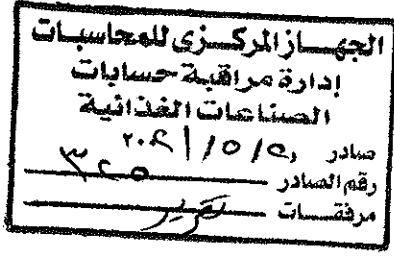 الجهاز المركزى للمحاسبات
إدارة مراقبة حسابات
الصناعات الغذائية
صادر
رقم الصادر ٣٢٥
مرفقات تقرير